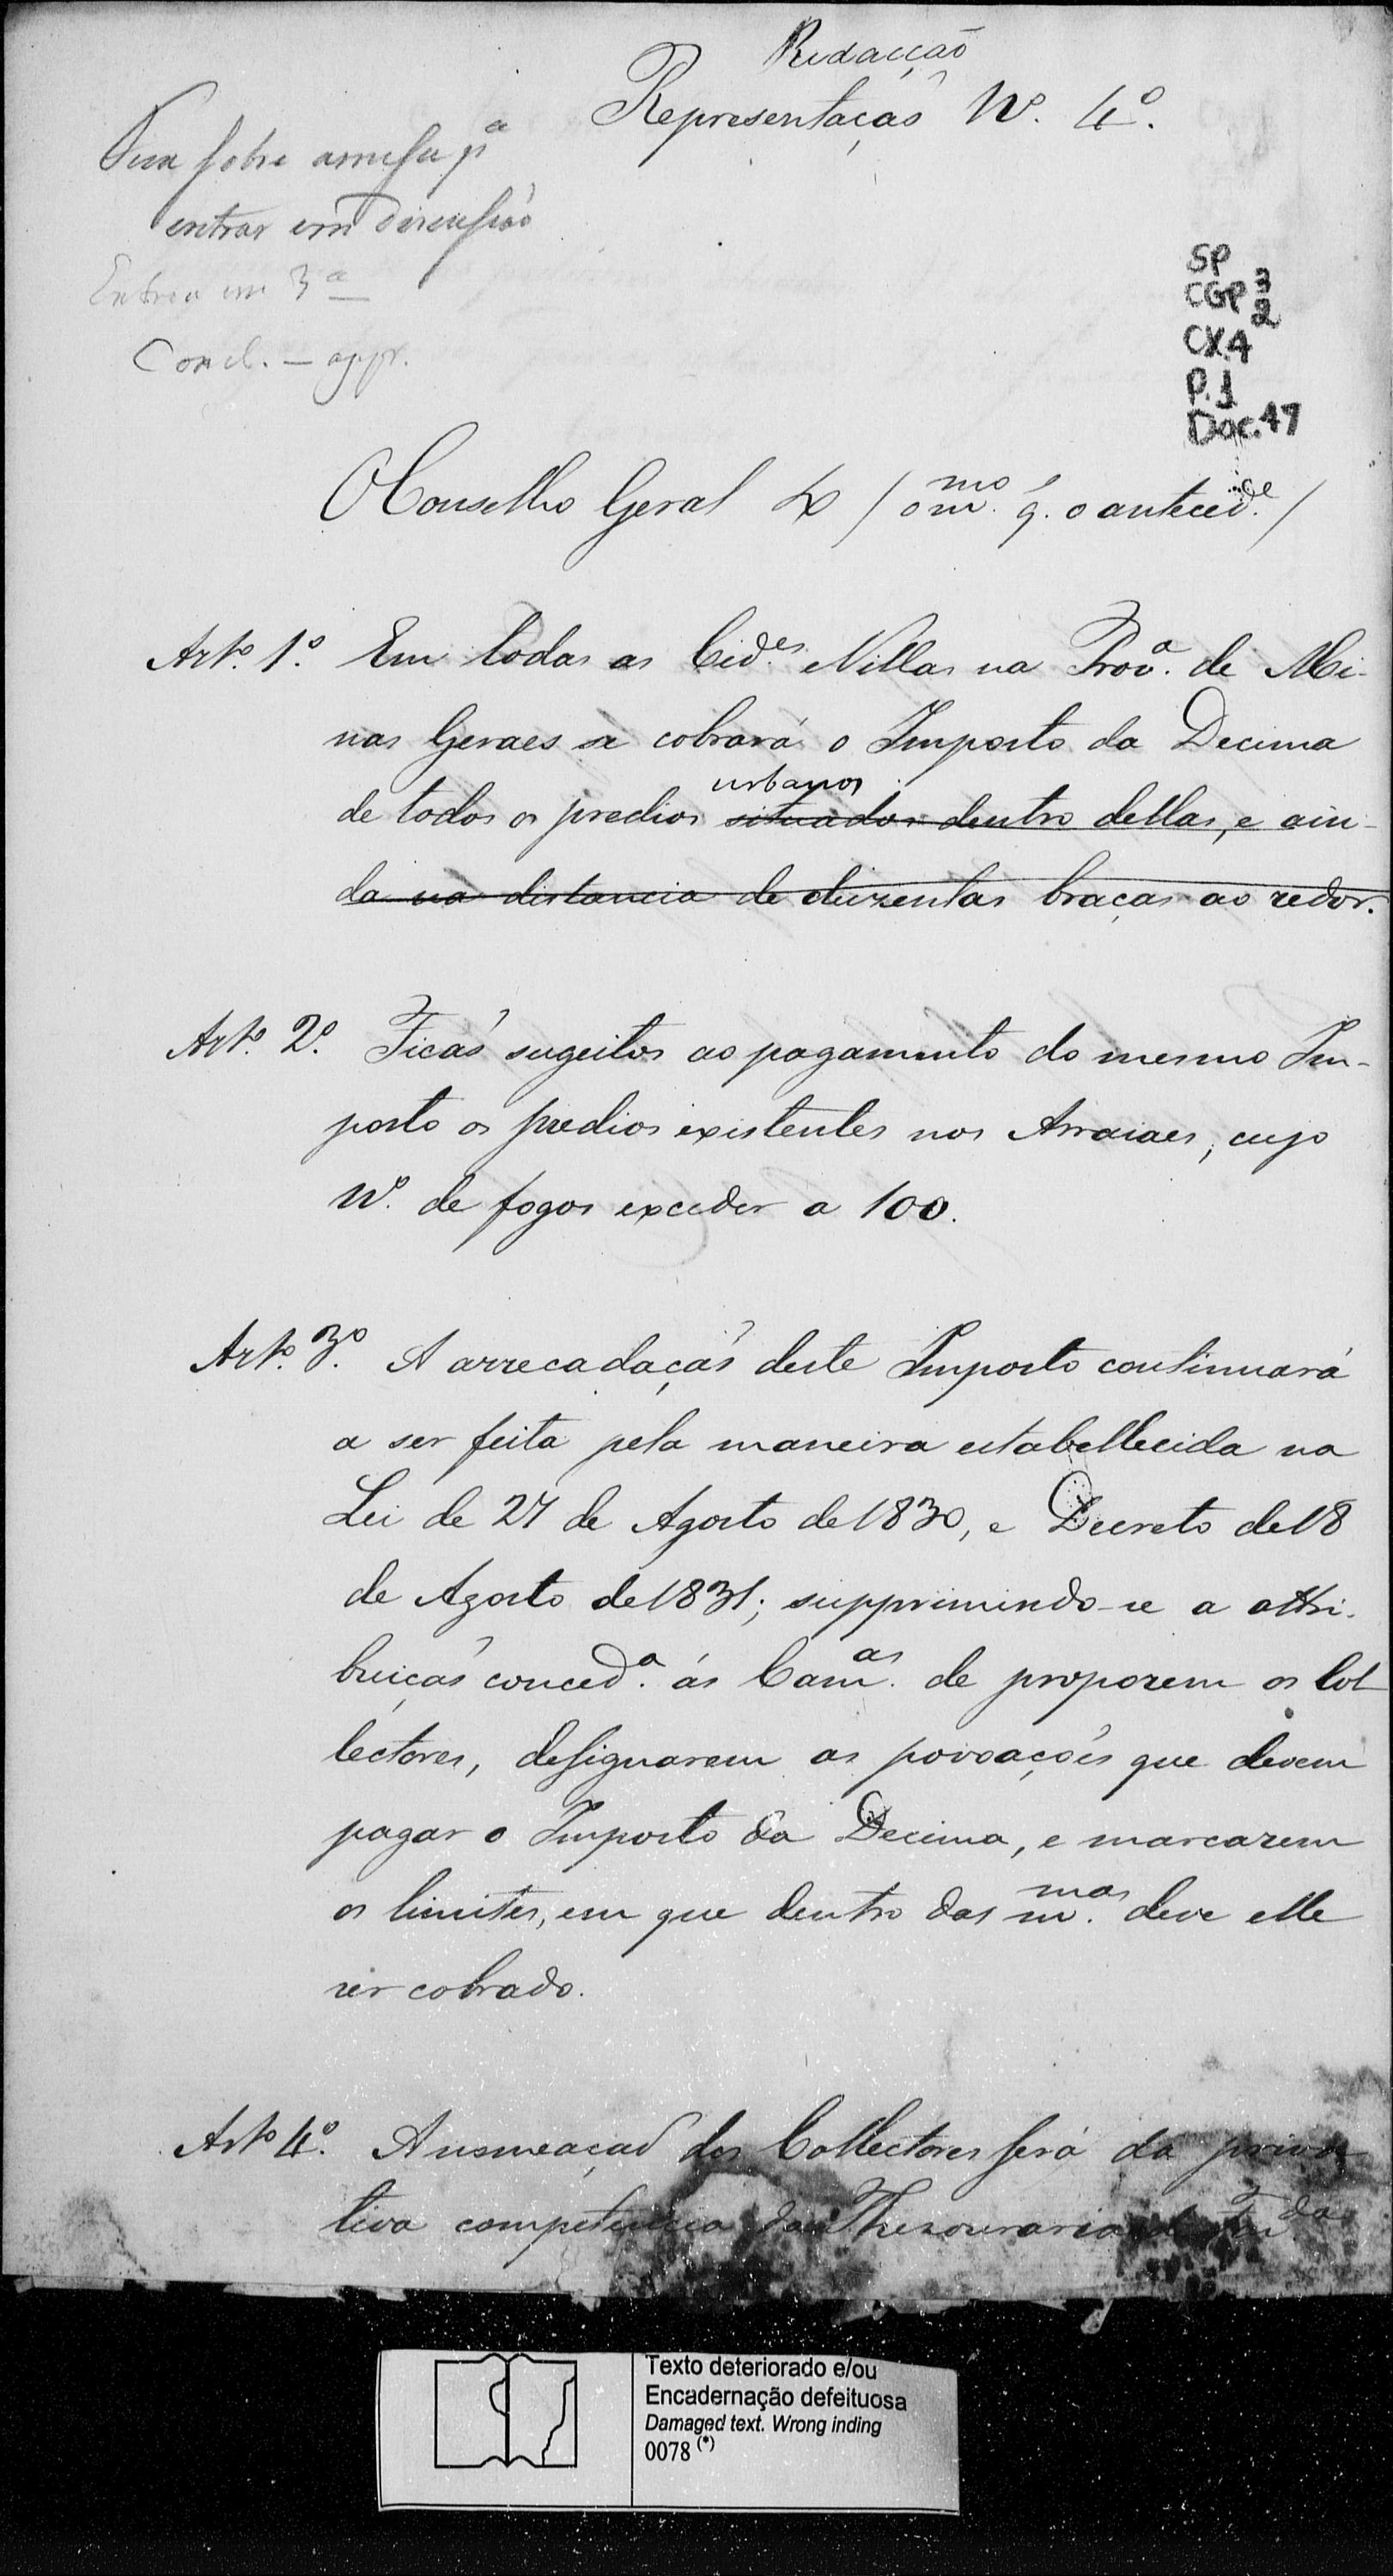 Redacção
Representaçaõ Nº. 4º.
Fica sobre a mesa pª
entrar em discussaõ
Entrou em 3ª
Concl. — appr.
SP
CGP 3
2
CX.4
P.1
Doc.47
O Conselho Geral &ª / o m.mo q. o anteced.e /
Artº. 1º. Em todas as Cid.es e Villas na Provª. de Mi-
nas Geraes se cobrará o Imposto da Decima
urbanos
de todos os predios situados dentro dellas, e ain-
da na distancia de duzentas braças ao redor.
Artº. 2º. Ficaõ sugeitos ao pagamento do mesmo Im-
posto os predios existentes nos Arraiaes, cujo
Nº. de fogos exceder a 100.
Artº. 3º. A arrecadaçaõ deste Imposto continuará
a ser feita pela maneira estabellecida na
Lei de 27 de Agosto de 1830, e Decreto de 18
de Agosto de 1831; supprimindo-se a attri-
buiçaõ conced.a ás Cam.as de proporem os Col
lectores, designarem as povoações que devem
pagar o Imposto da Decima, e marcarem
os limites, em que dentro das m.mas deve elle
ser cobrado.
Artº 4º. A nomeaçaõ dos Collectores será da priva
tiva competencia da Thesouraria da Faz.da
Texto deteriorado e/ou
Encadernação defeituosa
Damaged text. Wrong inding
0078 (*)